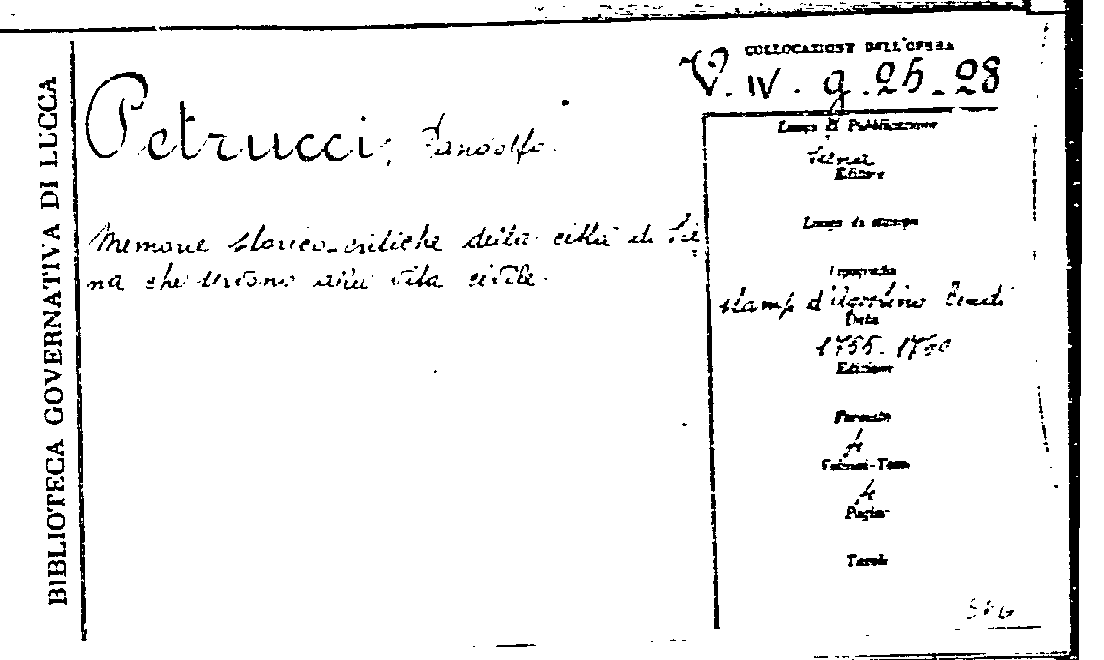 BIBLIOTECA GOVERNATIVA DI LUCCA
Petrucci, Pandolfo.
Memorie storico-critiche della città di Sie
na che servono alla vita civile.
COLLOCAZIONE DELL'OPERA
V. IV. g. 25-28
Luogo di Pubblicazione
Siena
Editore
Luogo di stampa
Tipografia
stamp d'Agostino Bindi
Data
1755-1760
Edizione
Formato
4
Volumi-Tomi
4
Pagine
Tavole